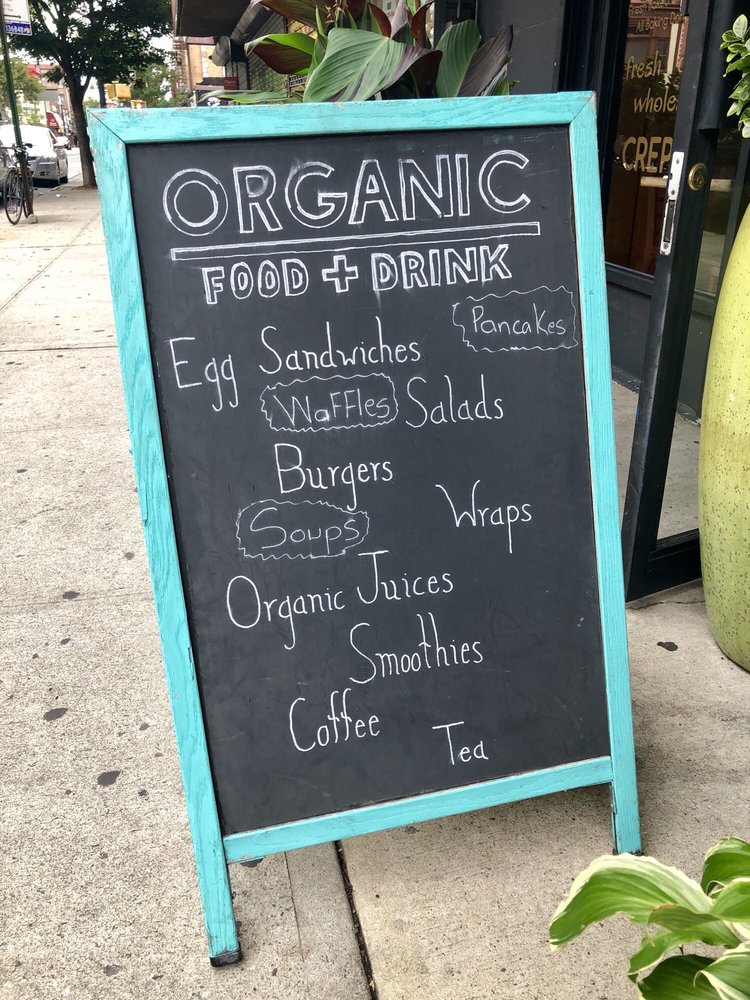 ORGANIC
FOOD + DRINK
Pancakes
Egg Sandwiches
Waffles Salads
Burgers
Soups
Wraps
Organic Juices
Smoothies
Coffee
Tea
fresh
whole
CREP